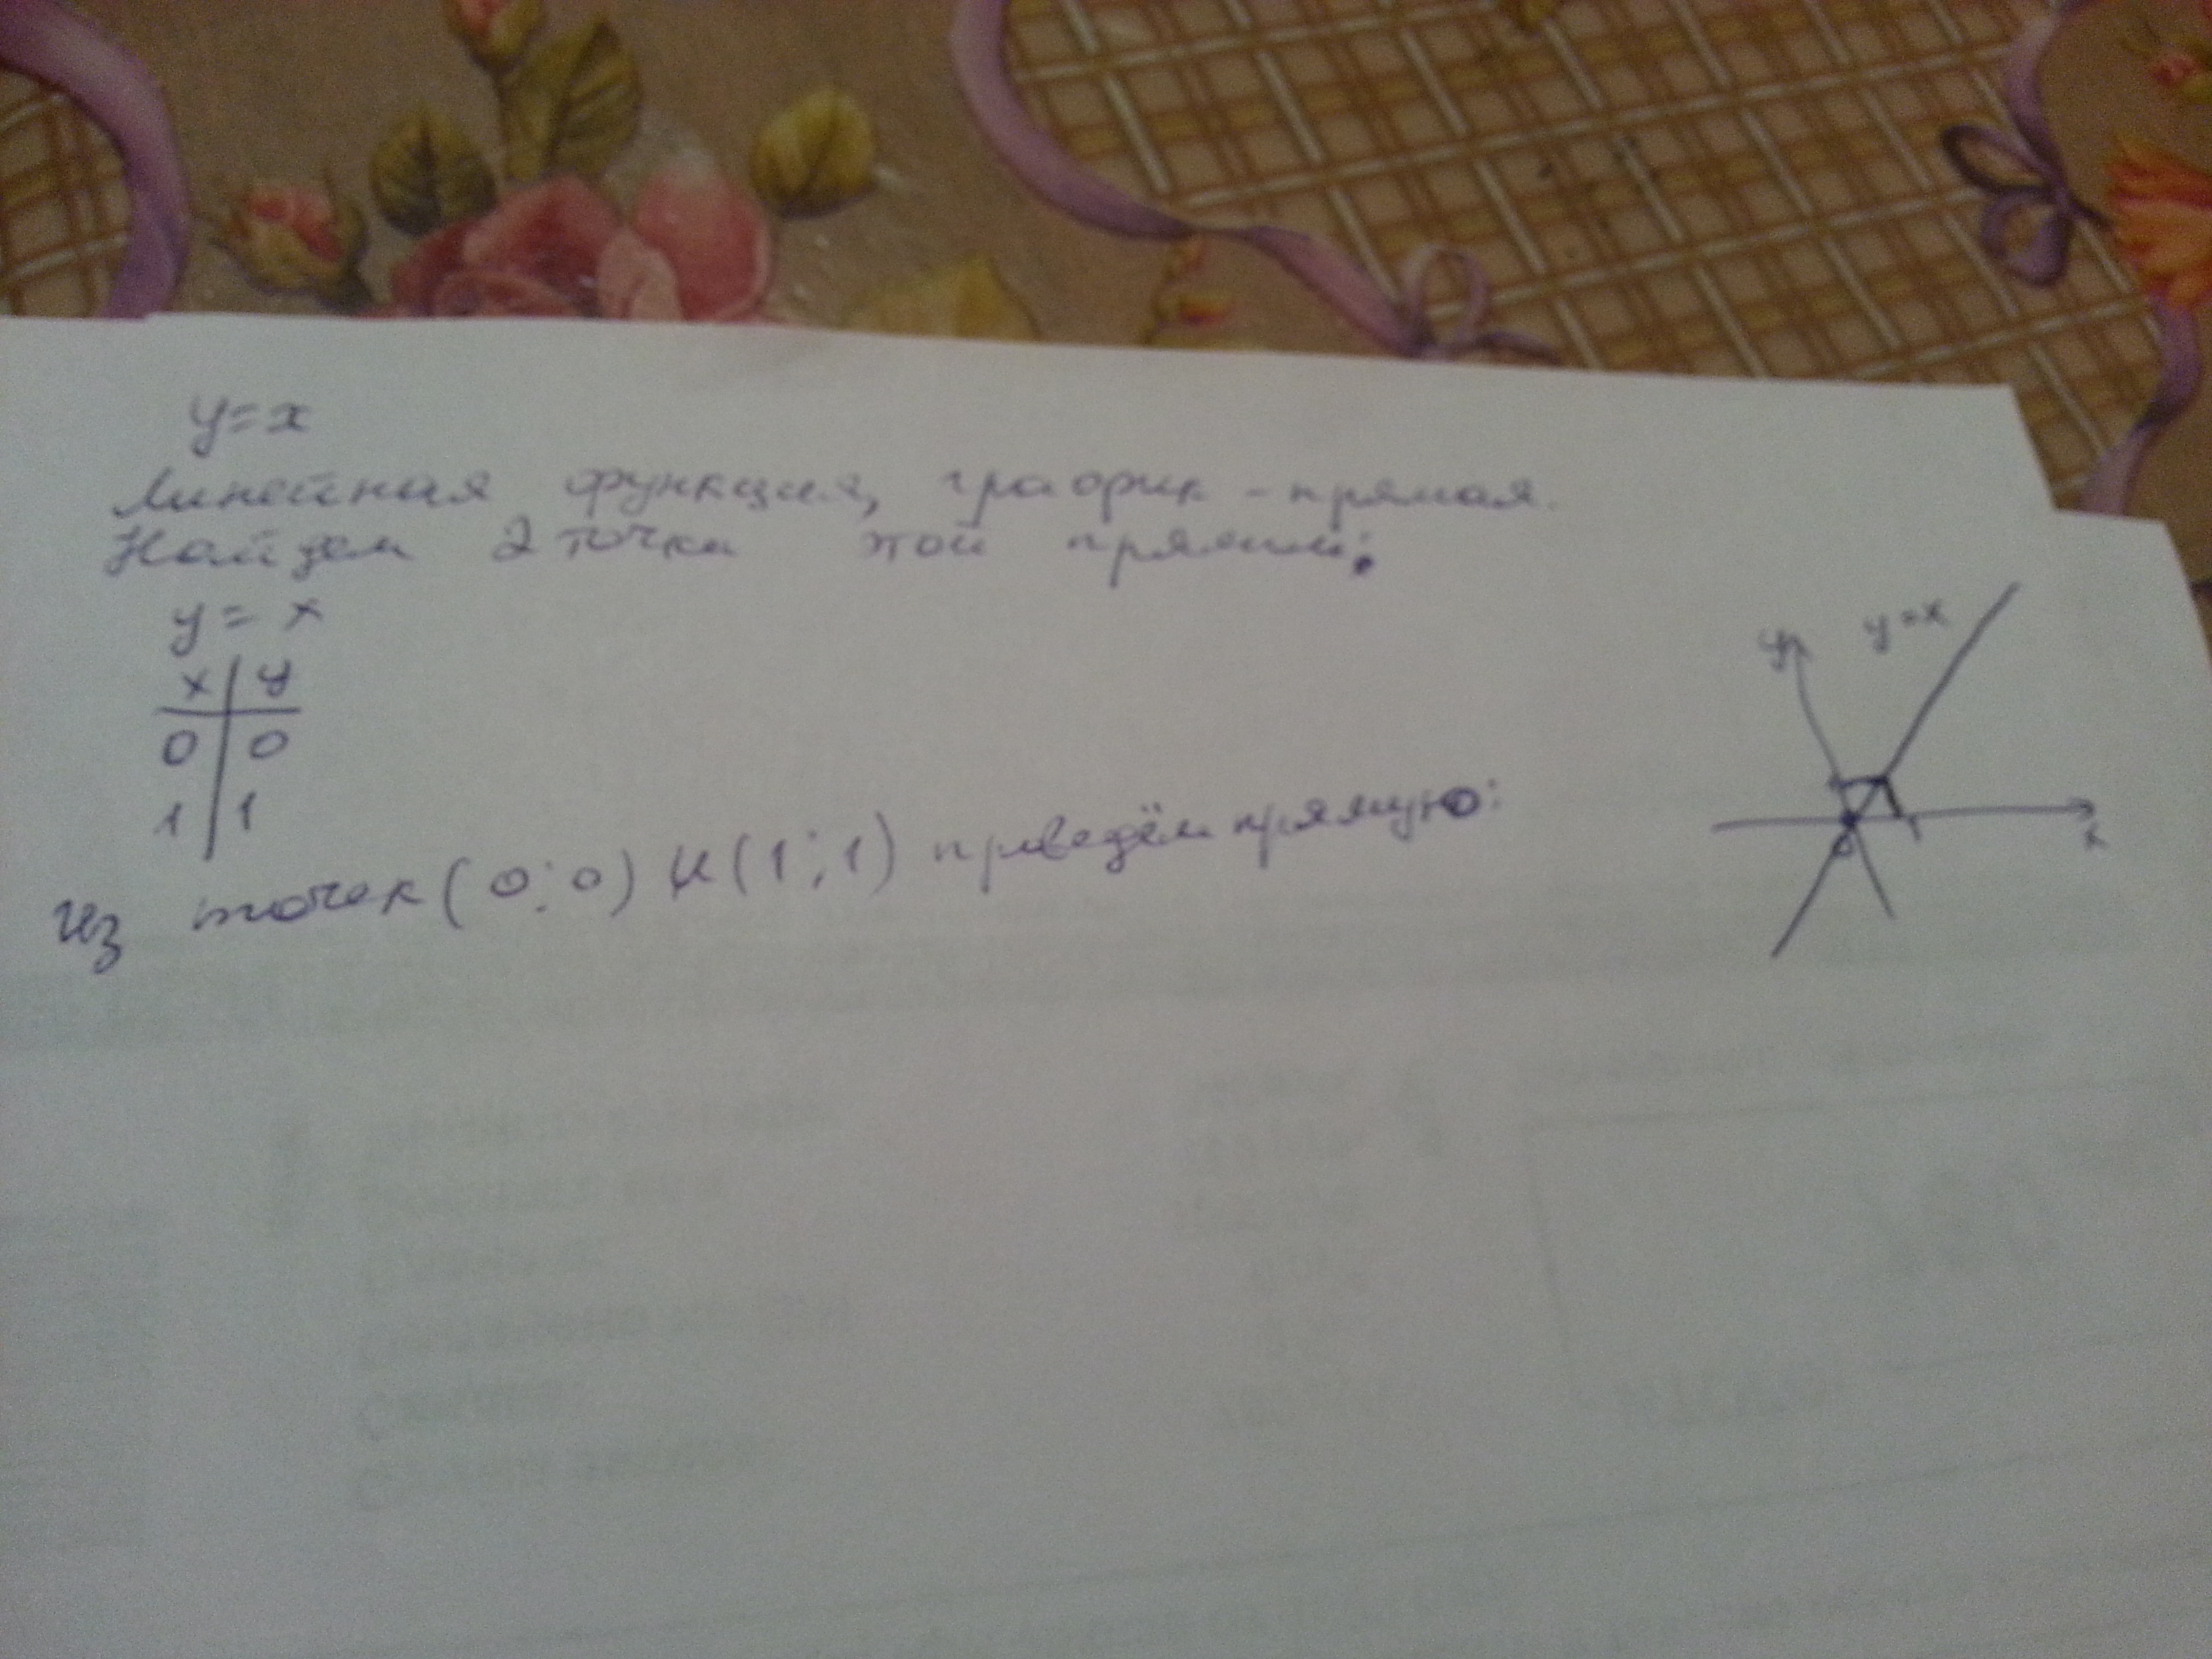 y=x
Линейная функция, график - прямая.
Найдем 2 точки этой прямой:
y = x
x | y
0 | 0
1 | 1
Из точек (0;0) и (1;1) проведём прямую:
y
y=x
0
x